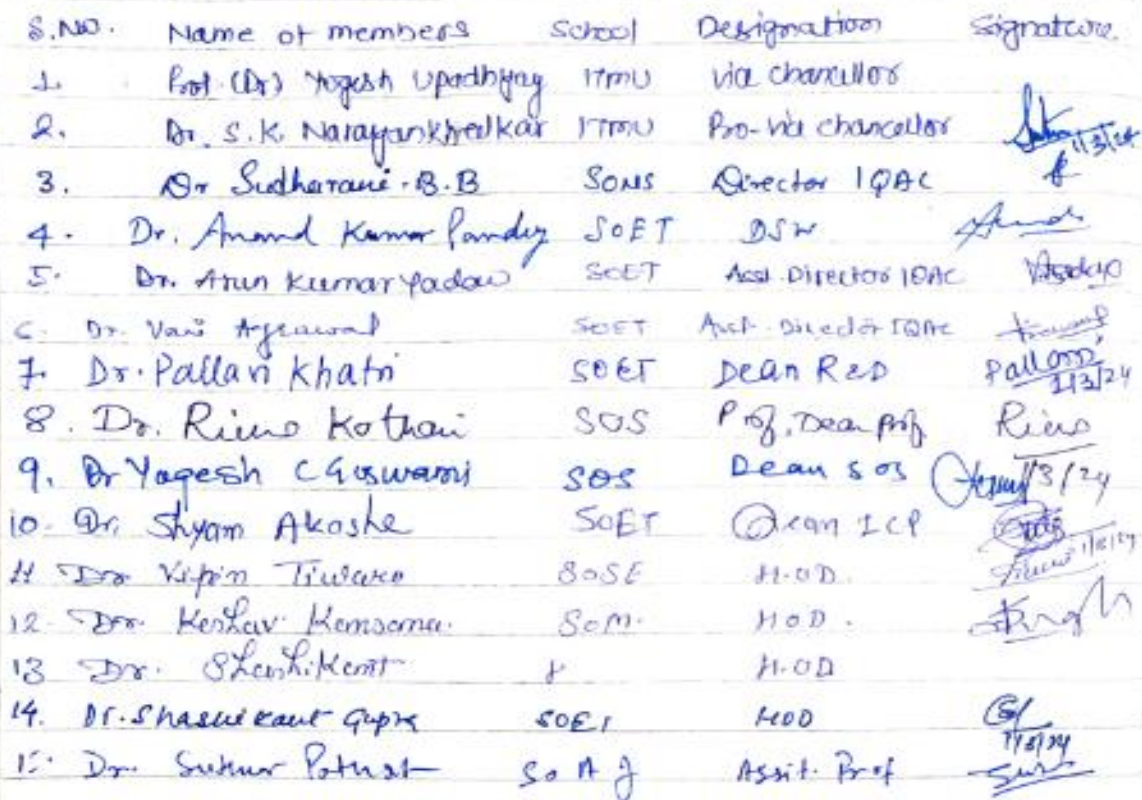 S.NO. Name of members School Designation Signature.
1. Prof. (Dr) Yogesh Upadhyay ITMU Vic chancellor
2. Dr. S.K. Narayankhedkar ITMU Pro-Vic chancellor 1/3/24
3. Dr Sudharani.B.B SONS Director IQAC
4. Dr. Anand Kumar Pandey SOET DSW
5. Dr. Arun Kumar Yadav SOET Asst. Director IQAC
6. Dr. Vani Agrawal SOET Asst. Director IQAC
7. Dr. Pallavi Khatri SOET Dean R&D Pallavi 1/3/24
8. Dr. Kothari SOS Prof, Dean
9. Dr Yogesh C Goswami SOS Dean SOS 1/3/24
10. Dr. Shyam Akashe SOET Dean ICP
11 Dr. Vipin Tiwari SOSE H.O.D. 1/3/24
12. Dr. Keshav Kansana SOM. HOD.
13 Dr. Shashikant H.O.D
14. Dr. Shashikant Gupta SOET HOD 1/3/24
15. Dr. SOAJ Assit. Prof